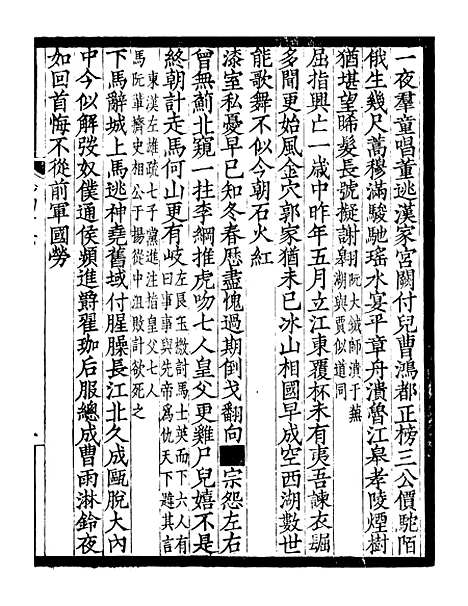 一夜羣童唱董逃漢家宮闕付兒曹鴻都正榜三公價駝陌
俄生幾尺蒿穆滿駿馳瑤水宴平章舟潰魯江皋孝陵煙樹
猶堪望晞髮長號擬謝翱
阮大鋮師潰于蕪
湖與賈似道同
屈指興亡一歲中昨年五月立江東覆杯未有夷吾諫衣镼
多聞更始風金穴郭家猶未已冰山相國早成空西湖數世
能歌舞不似今朝石火紅
漆室私憂早已知冬春歷盡愧過期倒戈翻向宗怨左右
曾無薊北窺一拄李綱推虎吻七人皇父更雞尸兒嬉不是
終朝計走馬何山更有岐
左良玉檄討馬士英而下六人有
曰事事與先帝為仇天下避其言
東漢左雄疏七子黨進注指皇父七人
馬阮華擠史相公于揚從中沮敗計欲死之
下馬辭城上馬逃神堯舊域付腥臊長江北久成甌脫大內
中今似解弢奴僕通侯頻進爵翟珈后服總成曹雨淋鈴夜
如回首悔不從前軍國勞